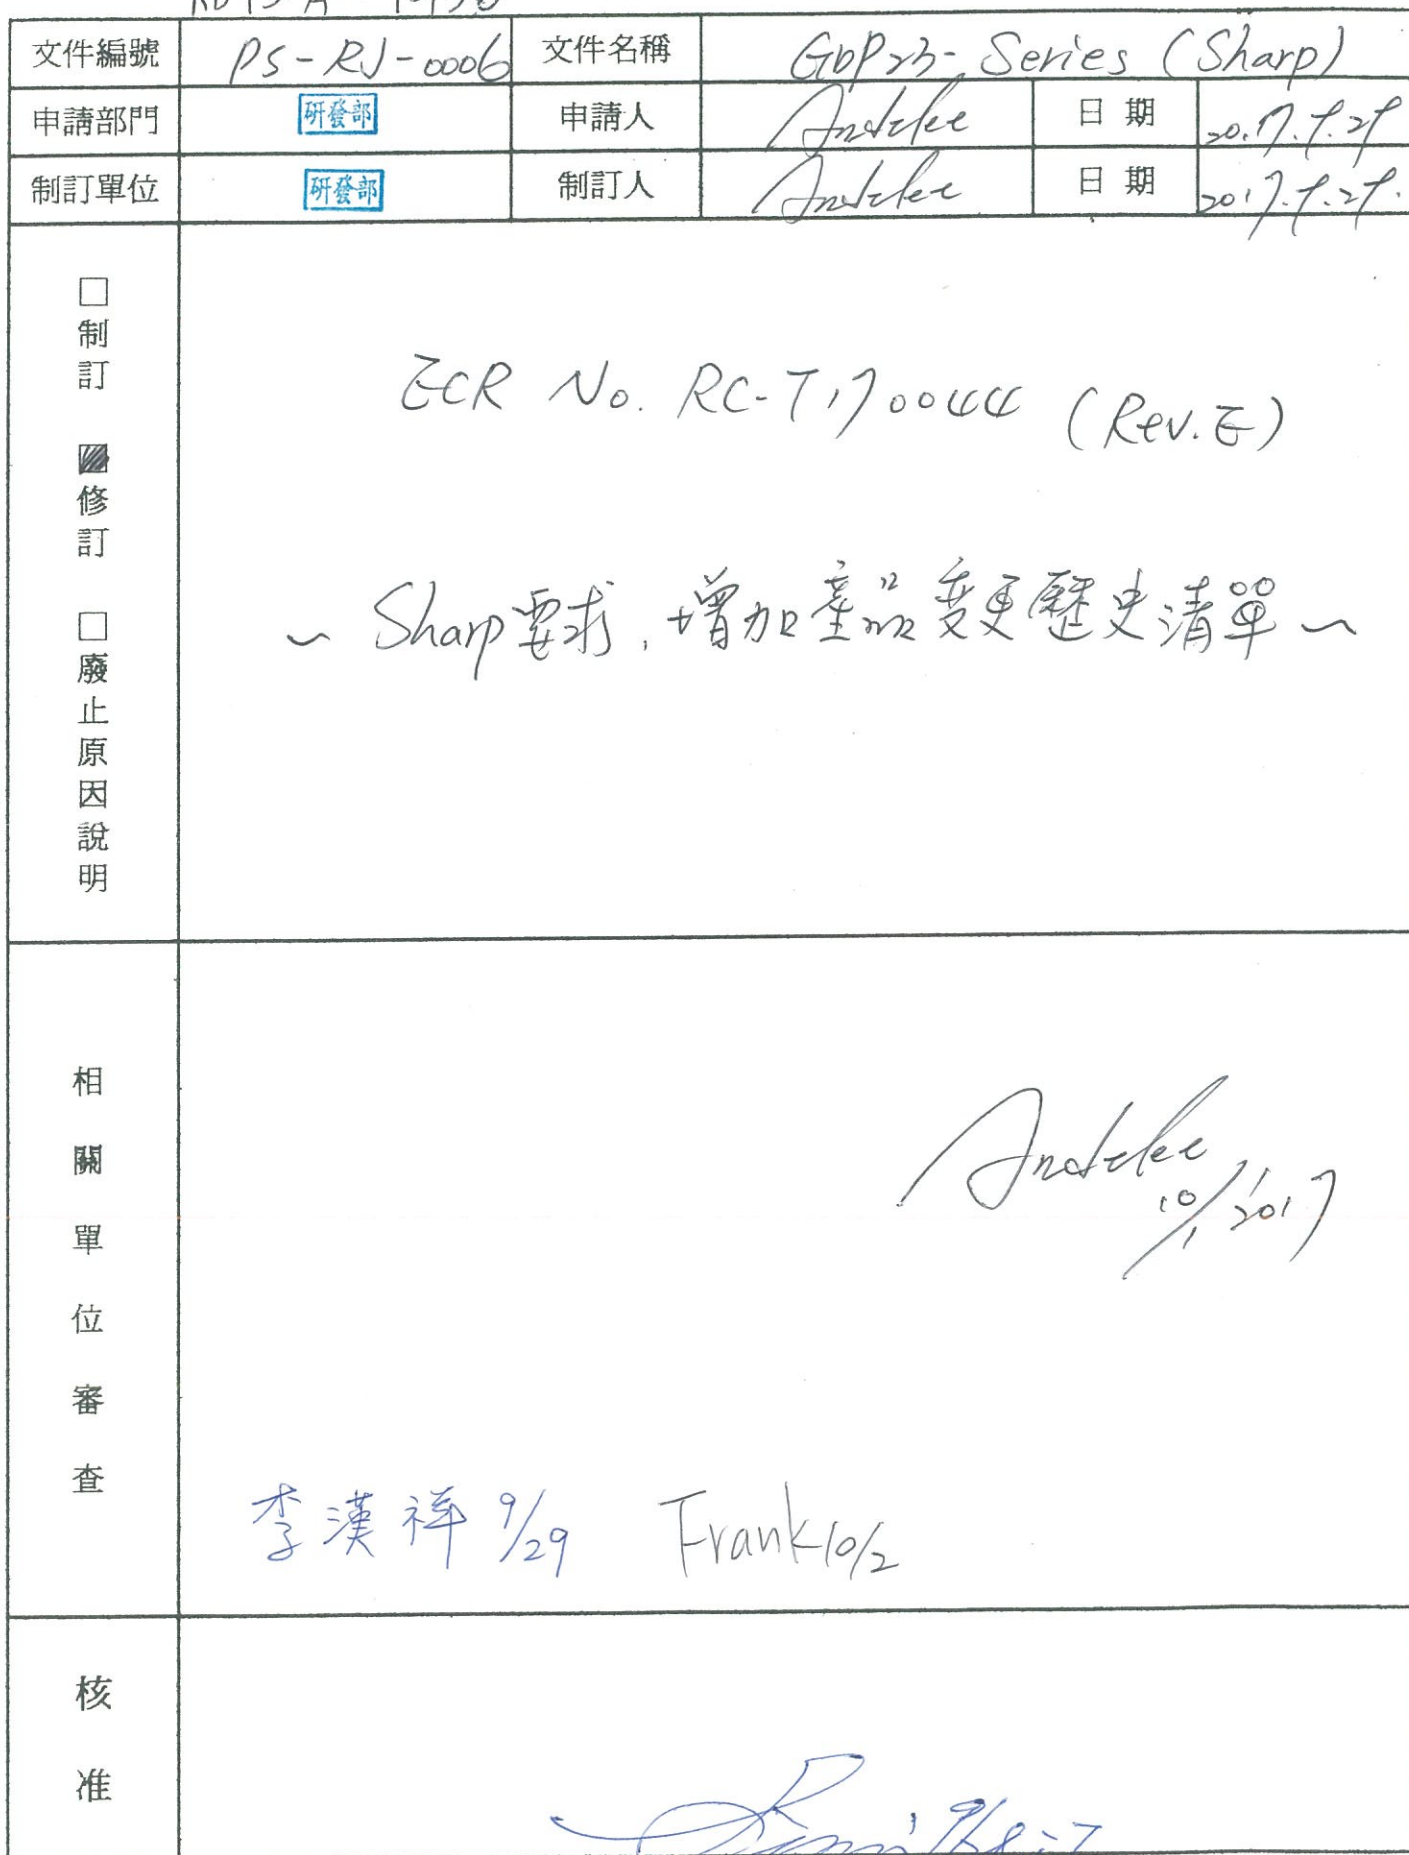 文件編號 PS-RJ-0006 文件名稱 GDP23-Series (Sharp)
申請部門 研發部 申請人 Andelee 日期 2017.9.29
制訂單位 研發部 制訂人 Andelee 日期 2017.9.29.
□制訂 ■修訂 □廢止原因說明
ECR No. RC-T170044 (Rev.E)
~ Sharp要求,增加產品變更歷史清單~
相關單位審查
Andelee
10/1 2017
李漢祥 9/29 Frank 10/2
核准